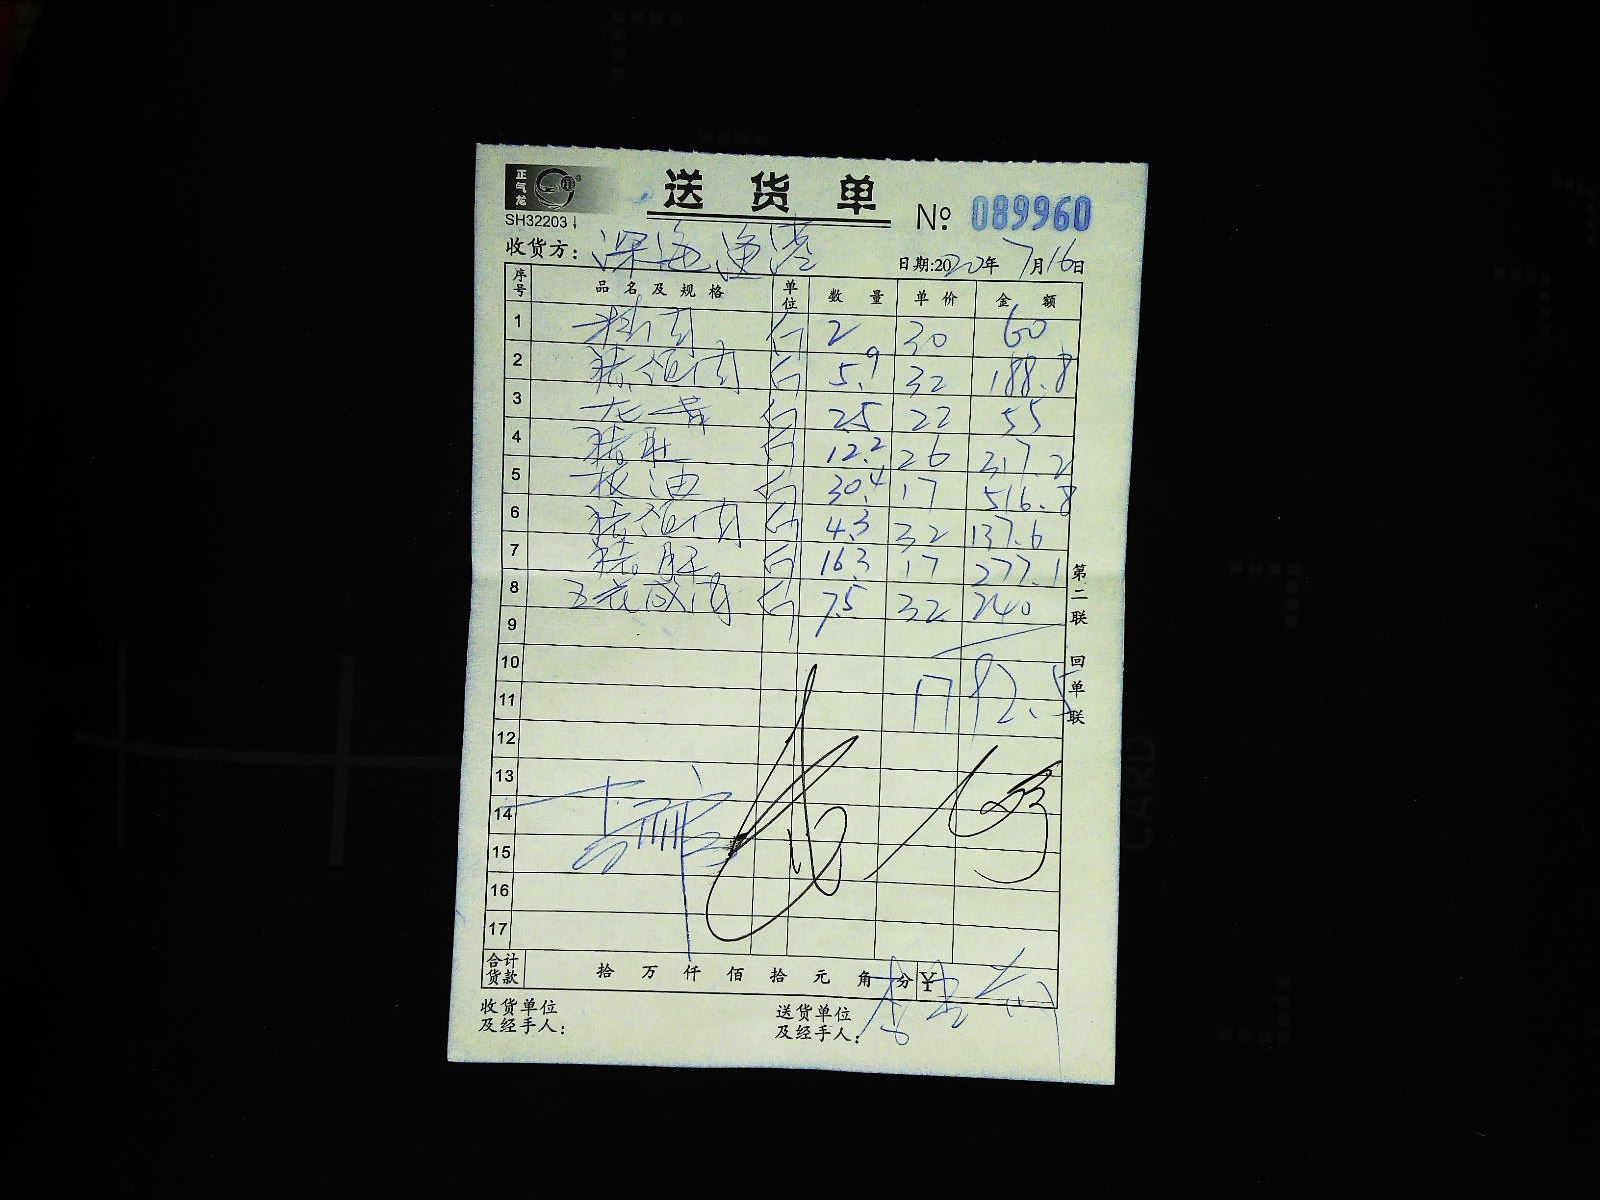 正气龙
送货单
SH32203
№ 089960
收货方: 深海渔港
日期:2020年7月16日
序号 品名及规格 单位 数量 单价 金额
1 精肉 斤 2 30 60
2 猪颈肉 斤 5.9 32 188.8
3 斤 2.5 22 55
4 猪肚 斤 12.2 26 317.2
5 板油 斤 30.4 17 516.8
6 猪颈肉 斤 4.3 32 137.6
7 猪肝 斤 16.3 17 277.1
8 五花肉 斤 7.5 32 240
9
10
11 1792.5
12
13
14
15
16
17
合计货款 拾 万 仟 佰 拾 元 角 分 ¥
收货单位及经手人:
送货单位及经手人:
第二联 回单联